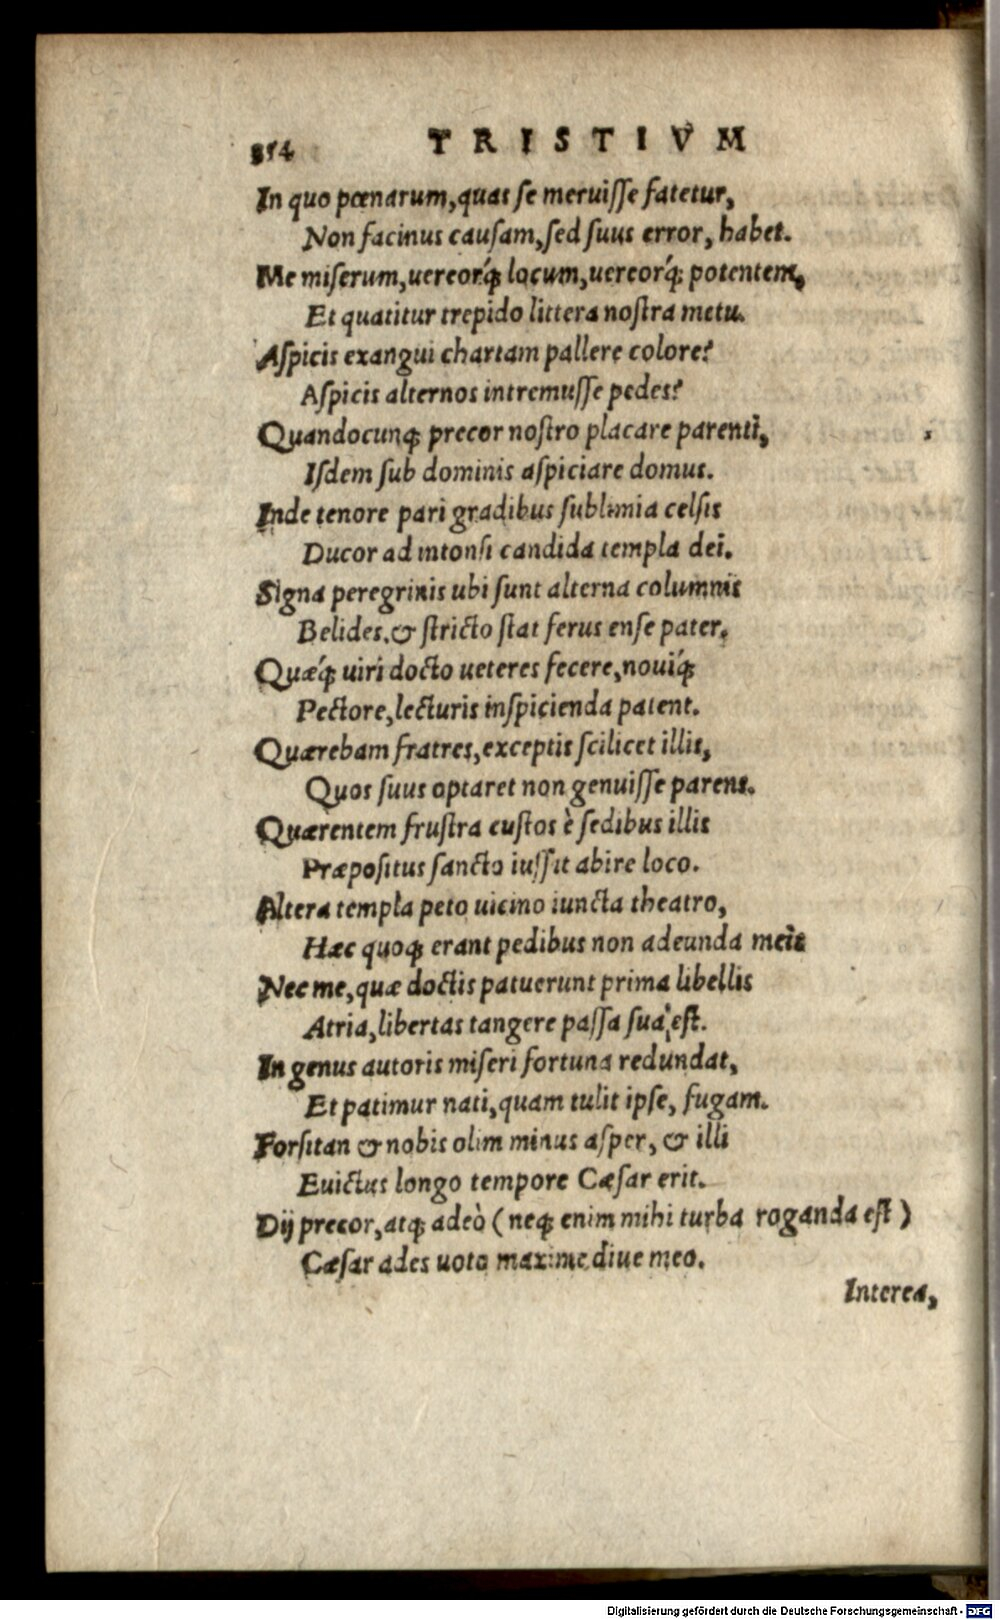 254 TRISTIVM
In quo pœnarum, quas se meruisse fatetur,
Non facinus causam, sed suus error, habet.
Me miserum, uereorq́; locum, uereorq́; potentem,
Et quatitur trepido littera nostra metu.
Aspicis exangui chartam pallere colore?
Aspicis alternos intremuisse pedes?
Quandocunq; precor nostro placare parenti,
Isdem sub dominis aspiciare domus.
Inde tenore pari gradibus sublimia celsis
Ducor ad intonsi candida templa dei.
Signa peregrinis ubi sunt alterna columnis
Belides, & stricto stat ferus ense pater.
Quæq́; uiri docto ueteres fecere, nouiq́;
Pectore, lecturis inspicienda patent.
Quærebam fratres, exceptis scilicet illis,
Quos suus optaret non genuisse parens.
Quærentem frustra custos è sedibus illis
Præpositus sancto iussit abire loco.
Altera templa peto uicino iuncta theatro,
Hæc quoq; erant pedibus non adeunda meis
Nec me, quæ doctis patuerunt prima libellis
Atria, libertas tangere passa sua est.
In genus autoris miseri fortuna redundat,
Et patimur nati, quam tulit ipse, fugam.
Forsitan & nobis olim minus asper, & illi
Euictus longo tempore Cæsar erit.
Dij precor, atq; adeò (neq; enim mihi turba roganda est)
Cæsar ades uoto maxime diue meo.
Interea,
Digitalisierung gefördert durch die Deutsche Forschungsgemeinschaft - DFG